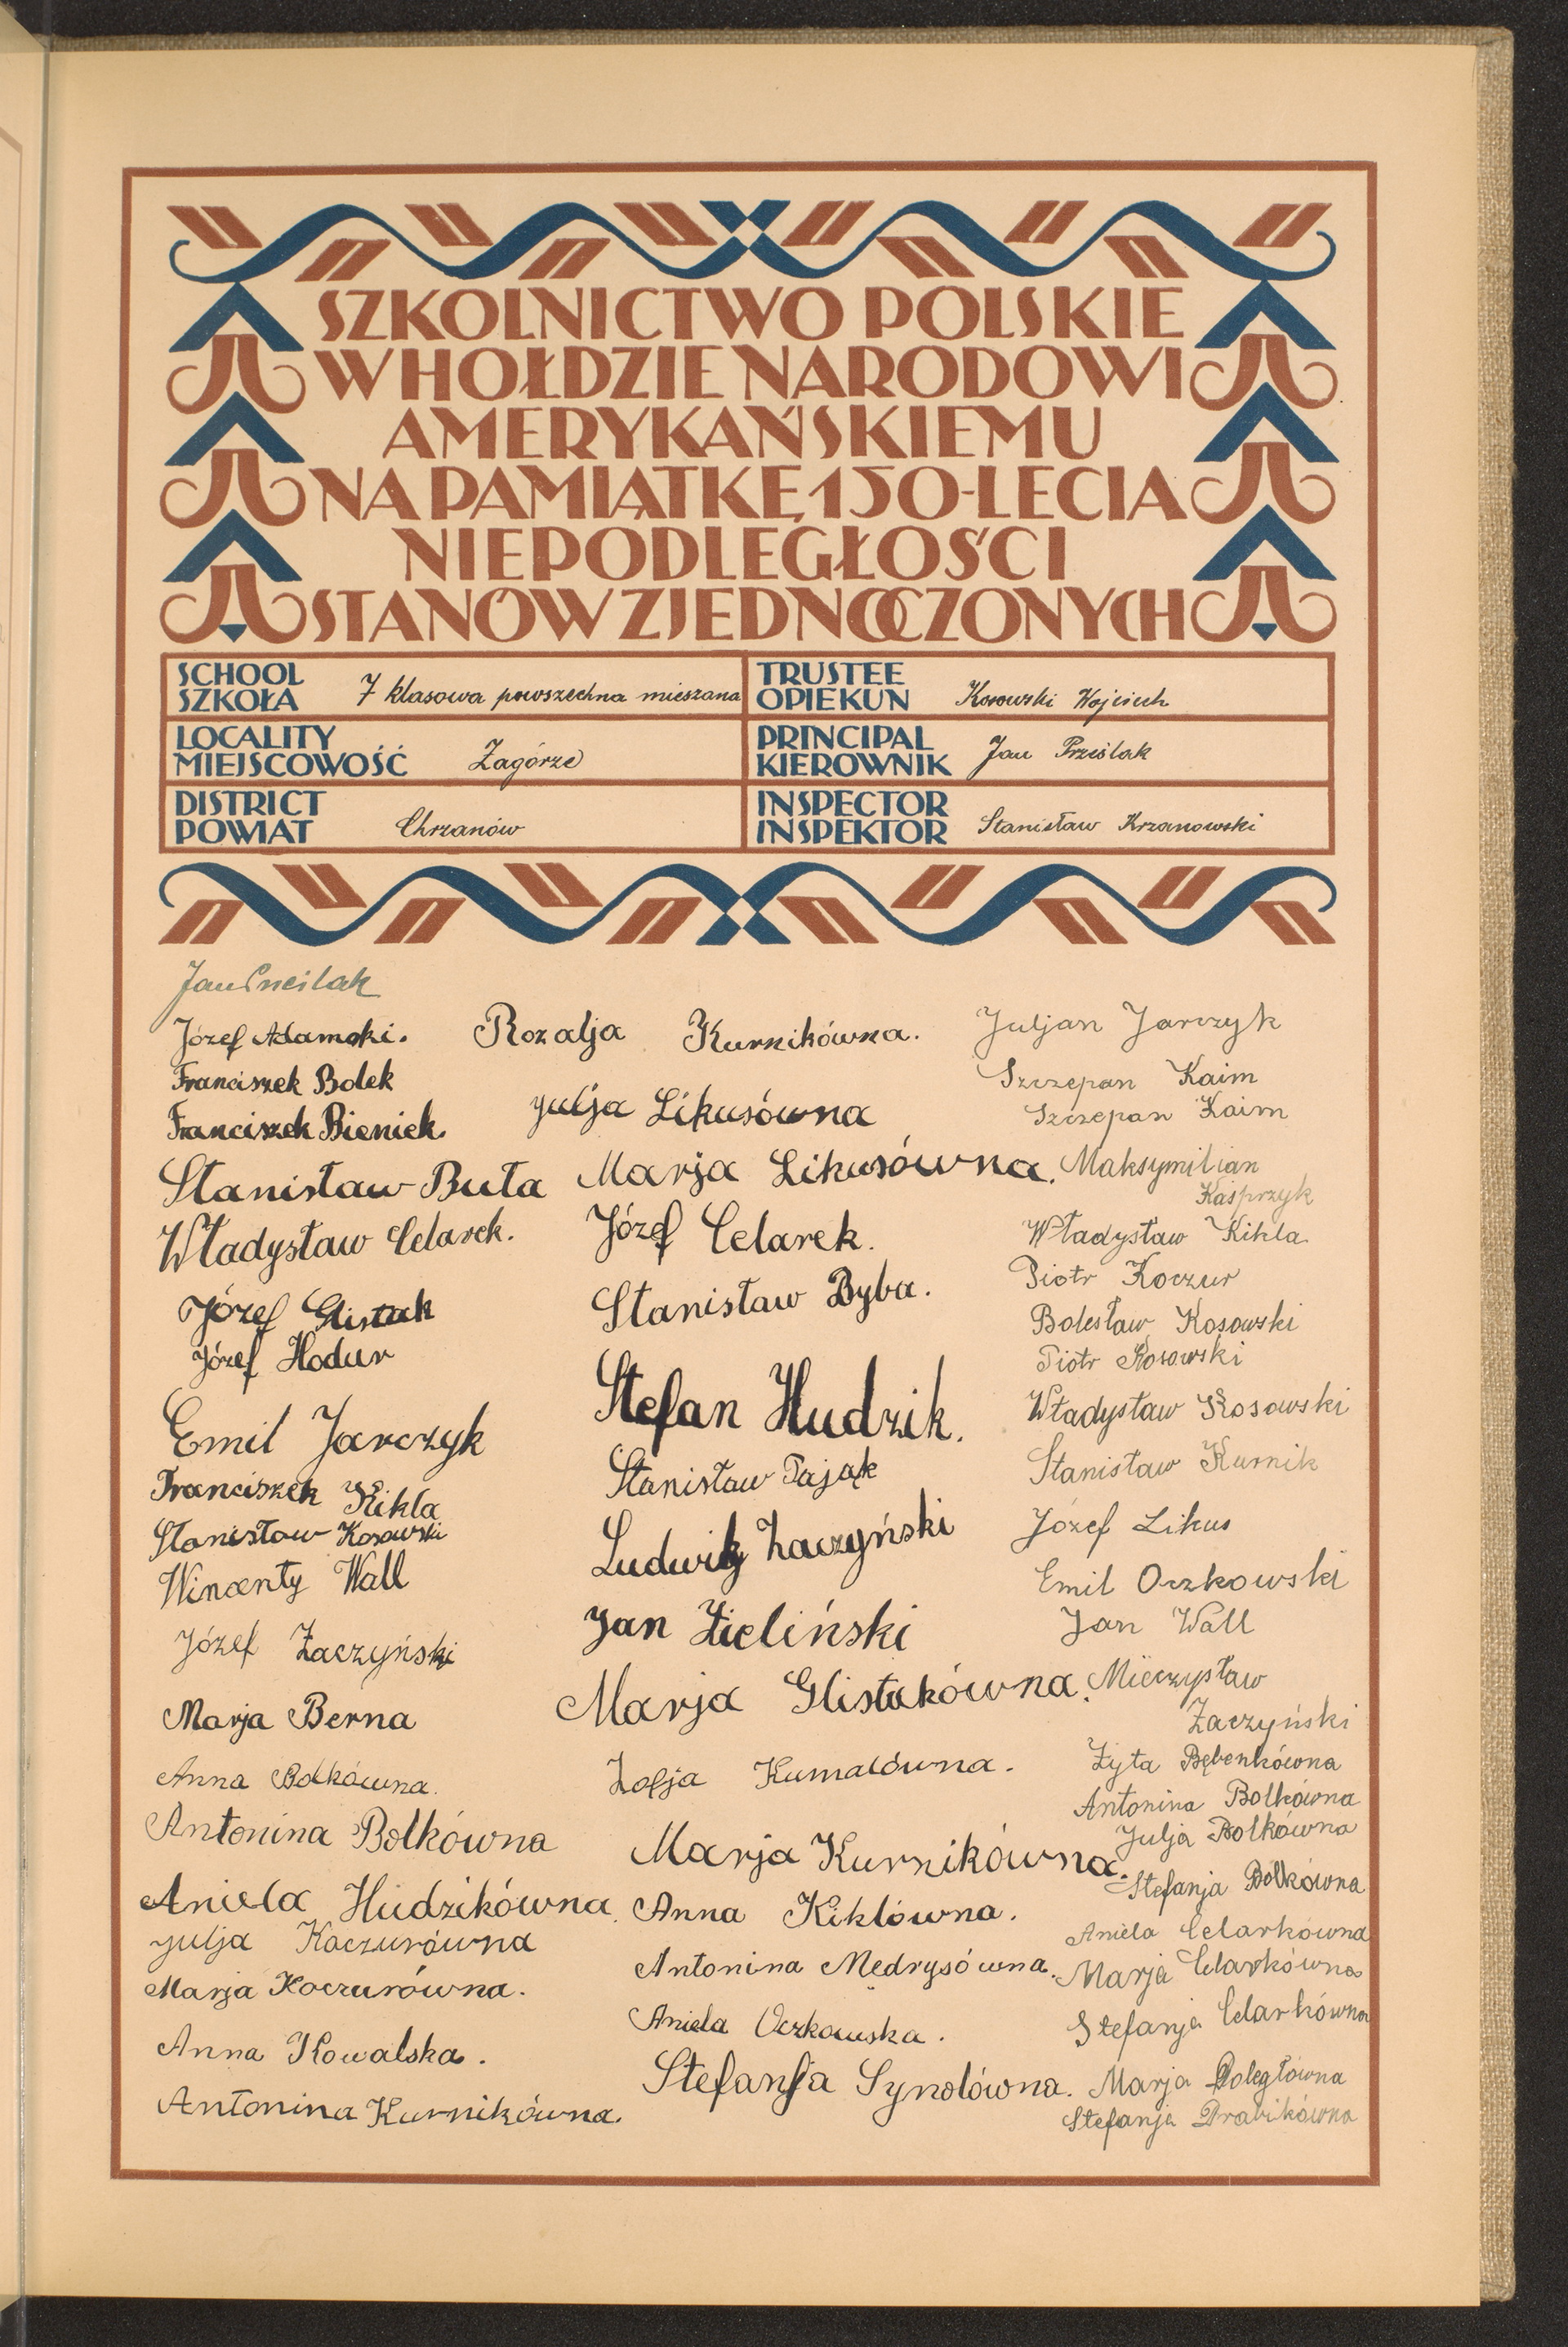 SZKOLNICTWO POLSKIE
W HOŁDZIE NARODOWI
AMERYKAŃSKIEMU
NA PAMIĄTKĘ 150-LECIA
NIEPODLEGŁOŚCI
STANÓW ZJEDNOCZONYCH
SCHOOL
SZKOŁA 7 klasowa powszechna mieszana
TRUSTEE
OPIEKUN Kosowski Wojciech
LOCALITY
MIEJSCOWOŚĆ Zagórze
PRINCIPAL
KIEROWNIK Jan Prześlak
DISTRICT
POWIAT Chrzanów
INSPECTOR
INSPEKTOR Stanisław Krzanowski
Jan
Józef Adamski.
Franciszek Bolek
Franciszek Bieniek.
Stanisław Buła
Władysław Celarek.
Józef Glistak
Józef Hodur
Emil Jarczyk
Franciszek Kikla
Stanisław Kosowski
Wincenty Wall
Józef Żaczyński
Marja Berna
Anna Bolkówna.
Antonina Bolkówna
Aniela Hudzikówna.
Julja Koczurówna
Marja Koczurówna.
Anna Kowalska.
Antonina Kurnikówna.
Rozalja Kurnikówna.
Julja Likusówna
Marja Likusówna.
Józef Celarek.
Stanisław Byba.
Stefan Hudzik.
Stanisław Pająk
Ludwik Żaczyński
Jan Zieliński
Marja Glistakówna.
Zofja Kumalówna.
Marja Kurnikówna.
Anna Kiklówna.
Antonina Mędrysówna.
Aniela Oczkowska.
Stefanja Synolówna.
Juljan Jarczyk
Szczepan Kaim
Szczepan Kaim
Maksymilian
Kasprzyk
Władysław Kikla
Piotr Koczur
Bolesław Kosowski
Piotr Kosowski
Władysław Kosowski
Stanisław Kurnik
Józef Likus
Emil Oczkowski
Jan Wall
Mieczysław
Żaczyński
Zyta Bębenkówna
Antonina Bolkówna
Julja Bolkówna
Stefanja Bolkówna
Aniela Celarkówna
Marja Celarkówna
Stefanja Celarkówna
Marja Doległówna
Stefanja Drabikówna